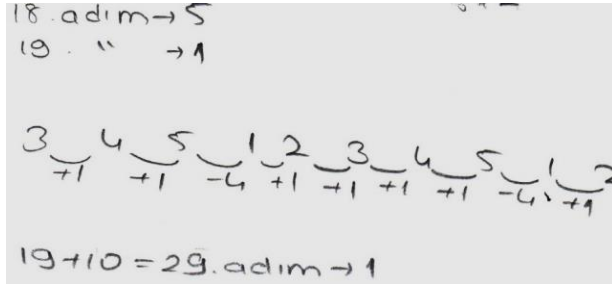 18.adım→5
19. " →1
3 4 5 1 2 3 4 5 1 2
+1 +1 -4 +1 +1 +1 +1 -4 +1
19+10=29.adım→1